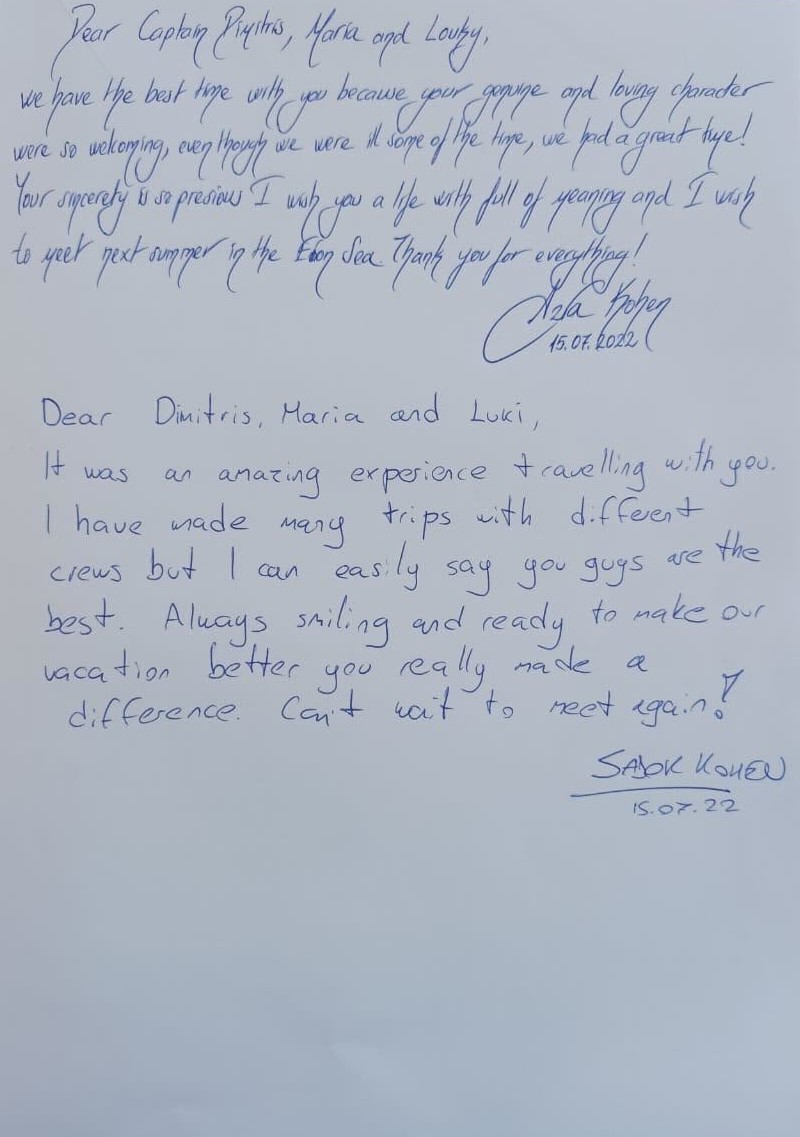 Dear Captain Dimitris, Maria and Louky,
we have the best time with you because your genuine and loving character
were so welcoming, even though we were ill some of the time, we had a great time!
Your sincerety is so presious I wish you a life with full of meaning and I wish
to meet next summer in the Sea. Thank you for everything!
Kohen
15.07.2022
Dear Dimitris, Maria and Luki,
It was an amazing experience travelling with you.
I have made many trips with different
crews but I can easily say you guys are the
best. Always smiling and ready to make our
vacation better you really made a
difference. Can't wait to meet again!
KOHEN
15.07.22